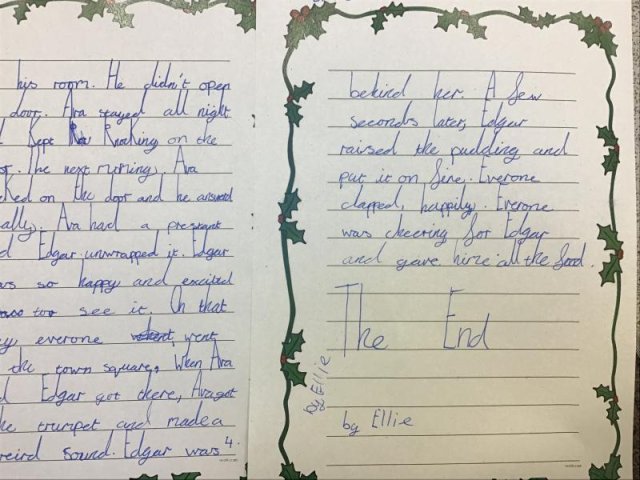 his room. He didn't open
door. Ara stayed all night
Kept Knocking on the
The next
on the door and he
Ara had a
Edgar unwrapped it. Edgar
so happy and excited
too see it. On that
everone went
the town square. When Ara
Edgar got there, Ara got
trumpet and made a
sound. Edgar was 4.
behind her. A few
seconds later, Edgar
raised the pudding and
put it on fire. Everone
clapped, happily. Everone
was cheering for Edgar
and gave him all the food.
The End
by Ellie
by Ellie